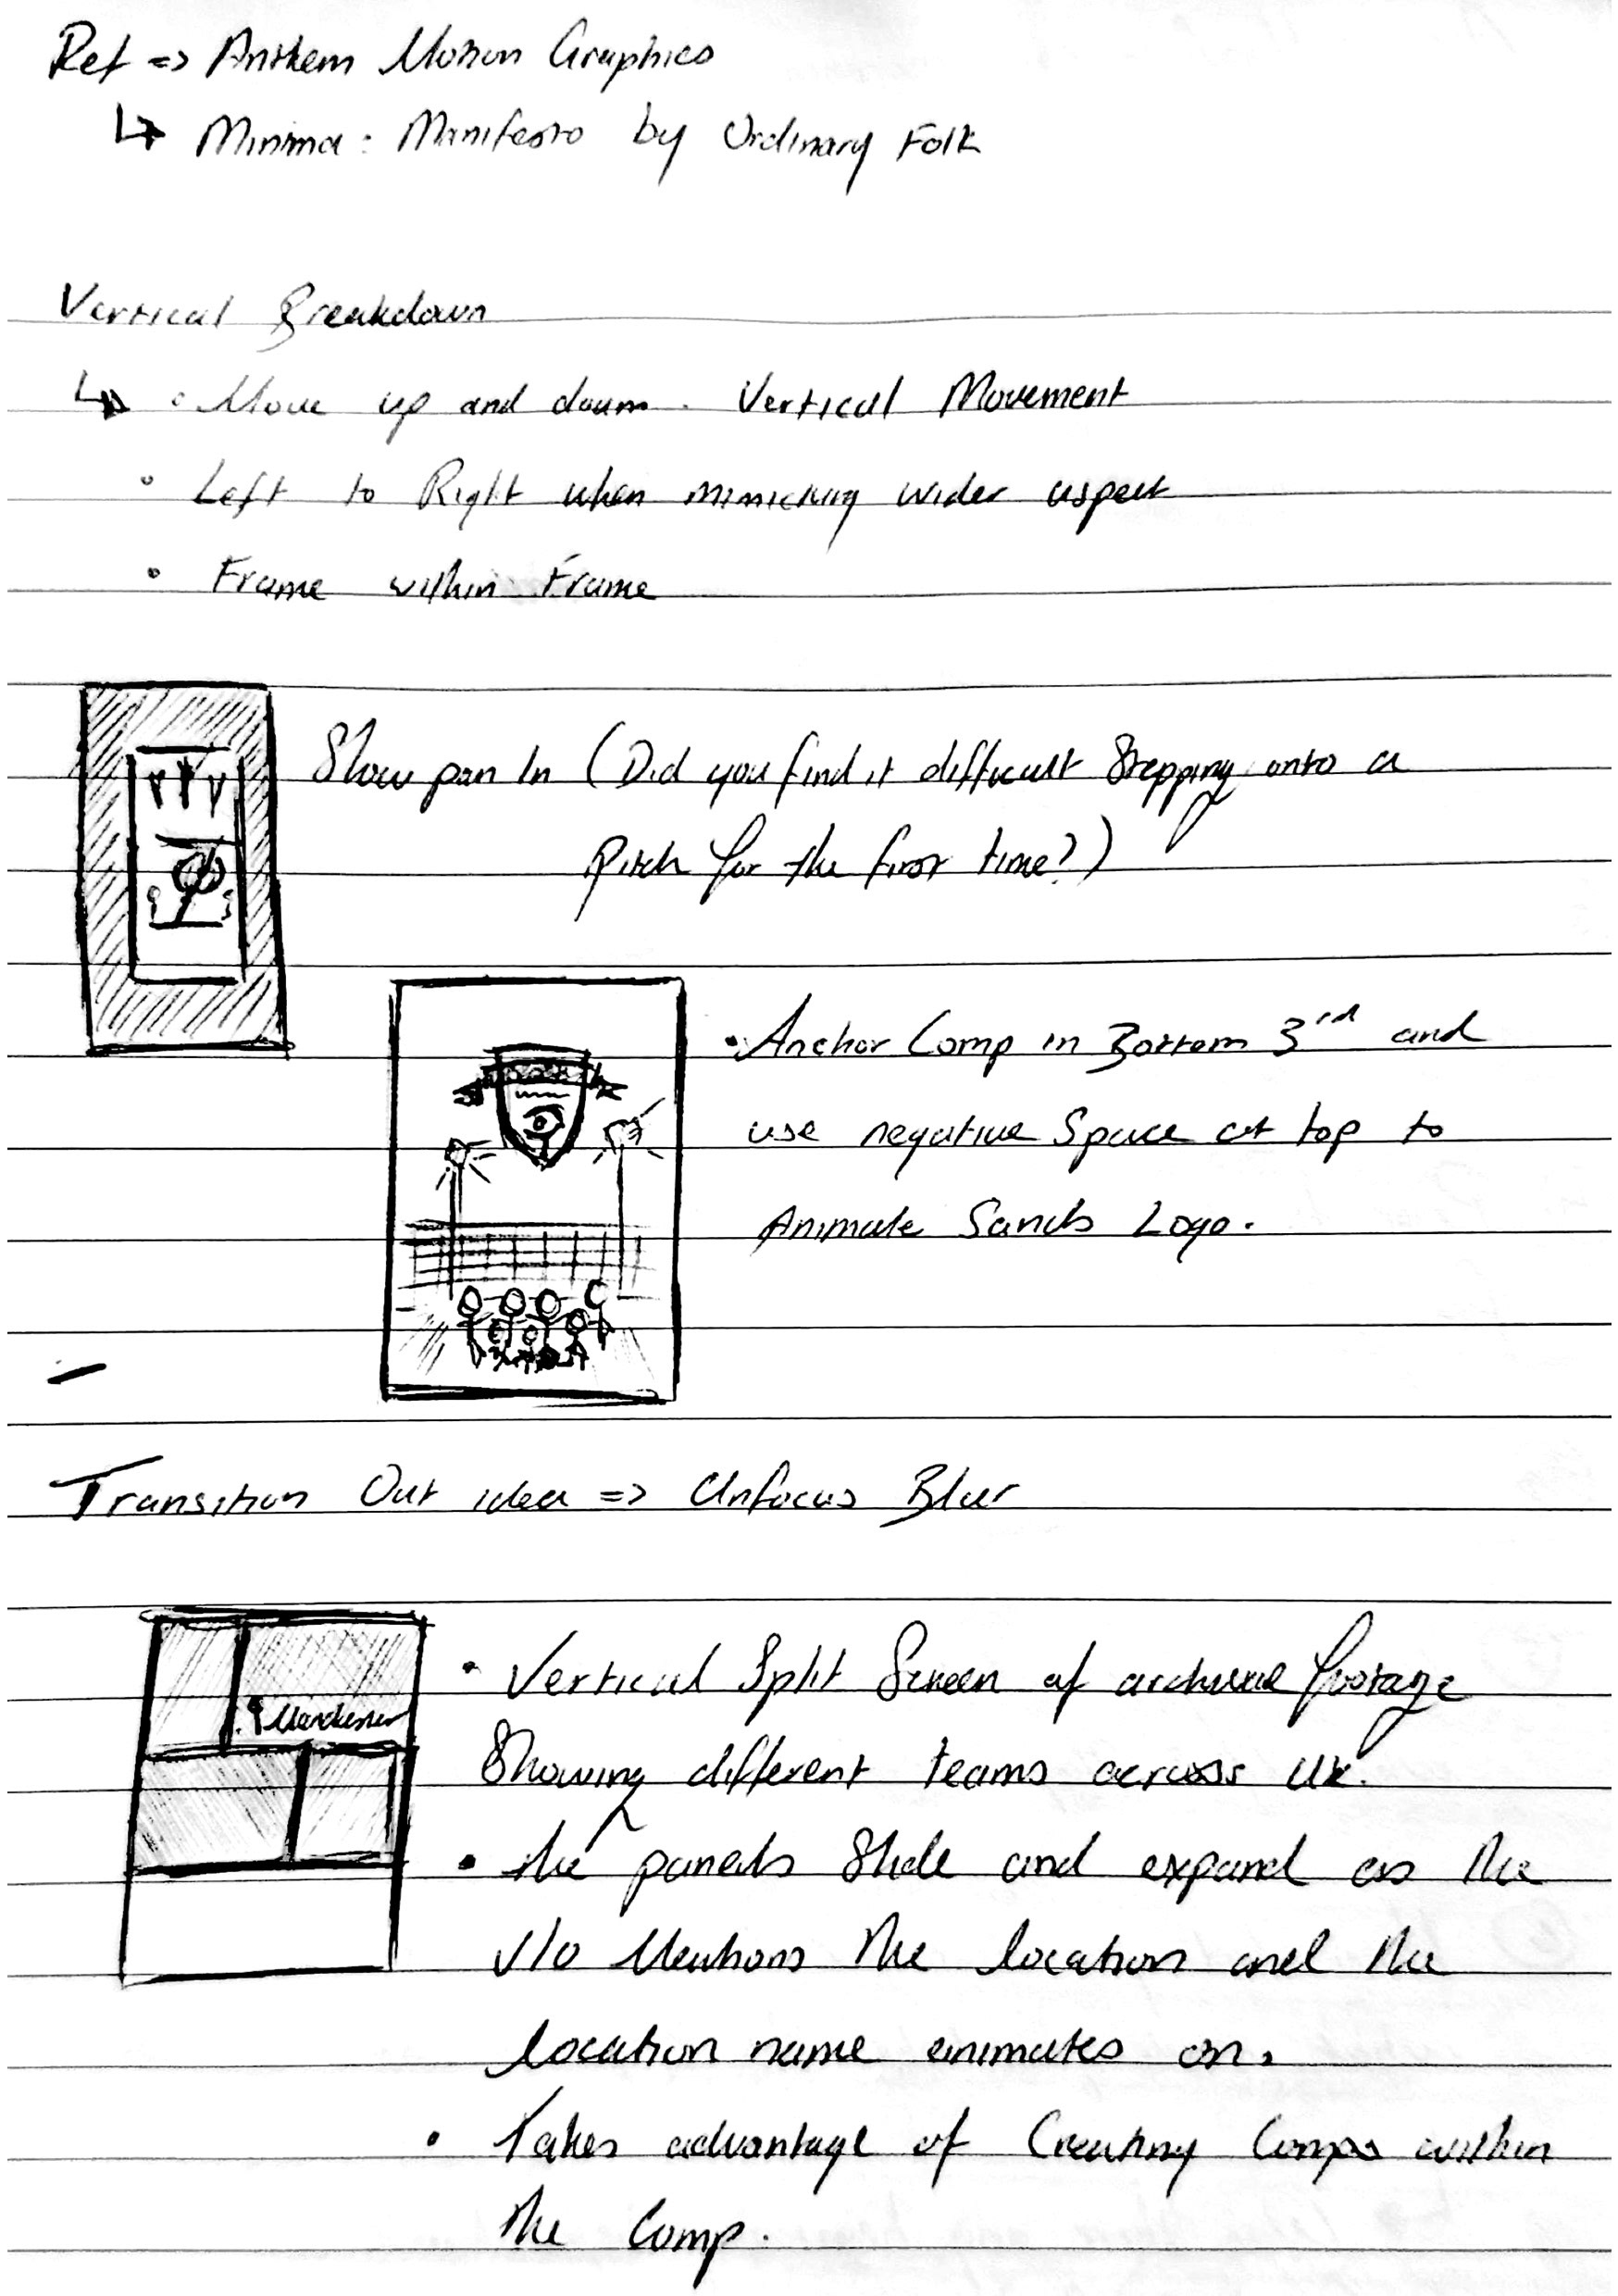 Ref => Anthem Motion Graphics
↳ Minima: Manifesto by Ordinary Folk
Vertical Breakdown
↳ • Move up and down. Vertical Movement
• Left to Right when mimicking wider aspect
• Frame within Frame
Slow pan in (Did you find it difficult stepping onto a
Pitch for the first time?)
• Anchor Comp in Bottom 3rd and
use negative Space at top to
Animate Sands Logo.
Transition Out idea => Unfocus Blur
• Vertical Split Screen of archive footage
Manchester
Showing different teams across UK.
• the panels Slide and expand as the
V/O Mentions the location and the
location name animates on.
• Takes advantage of Creating Comps within
the Comp.